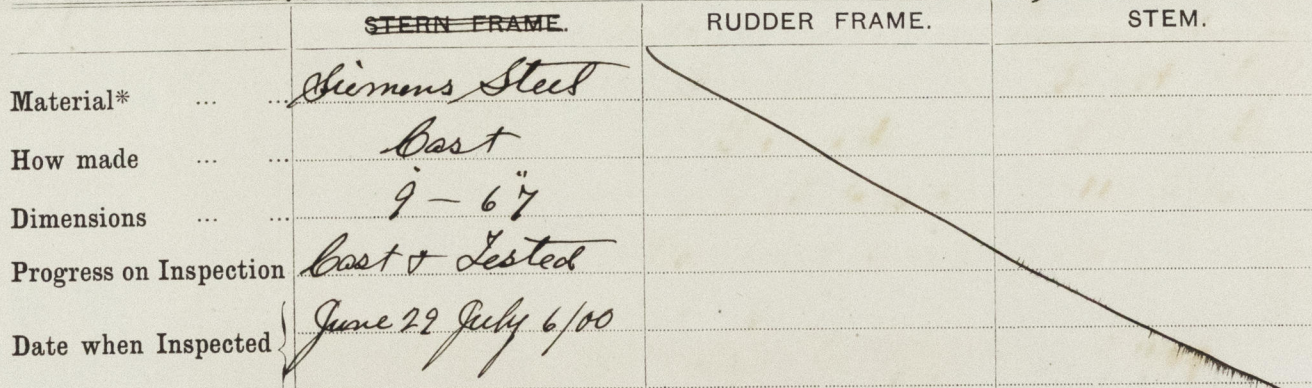 STERN FRAME. RUDDER FRAME. STEM.
Material* ... ... Siemens Steel
How made ... ... Cast
Dimensions ... ... 9 — 6"
Progress on Inspection Cast & Tested
Date when Inspected June 29 July 6/00